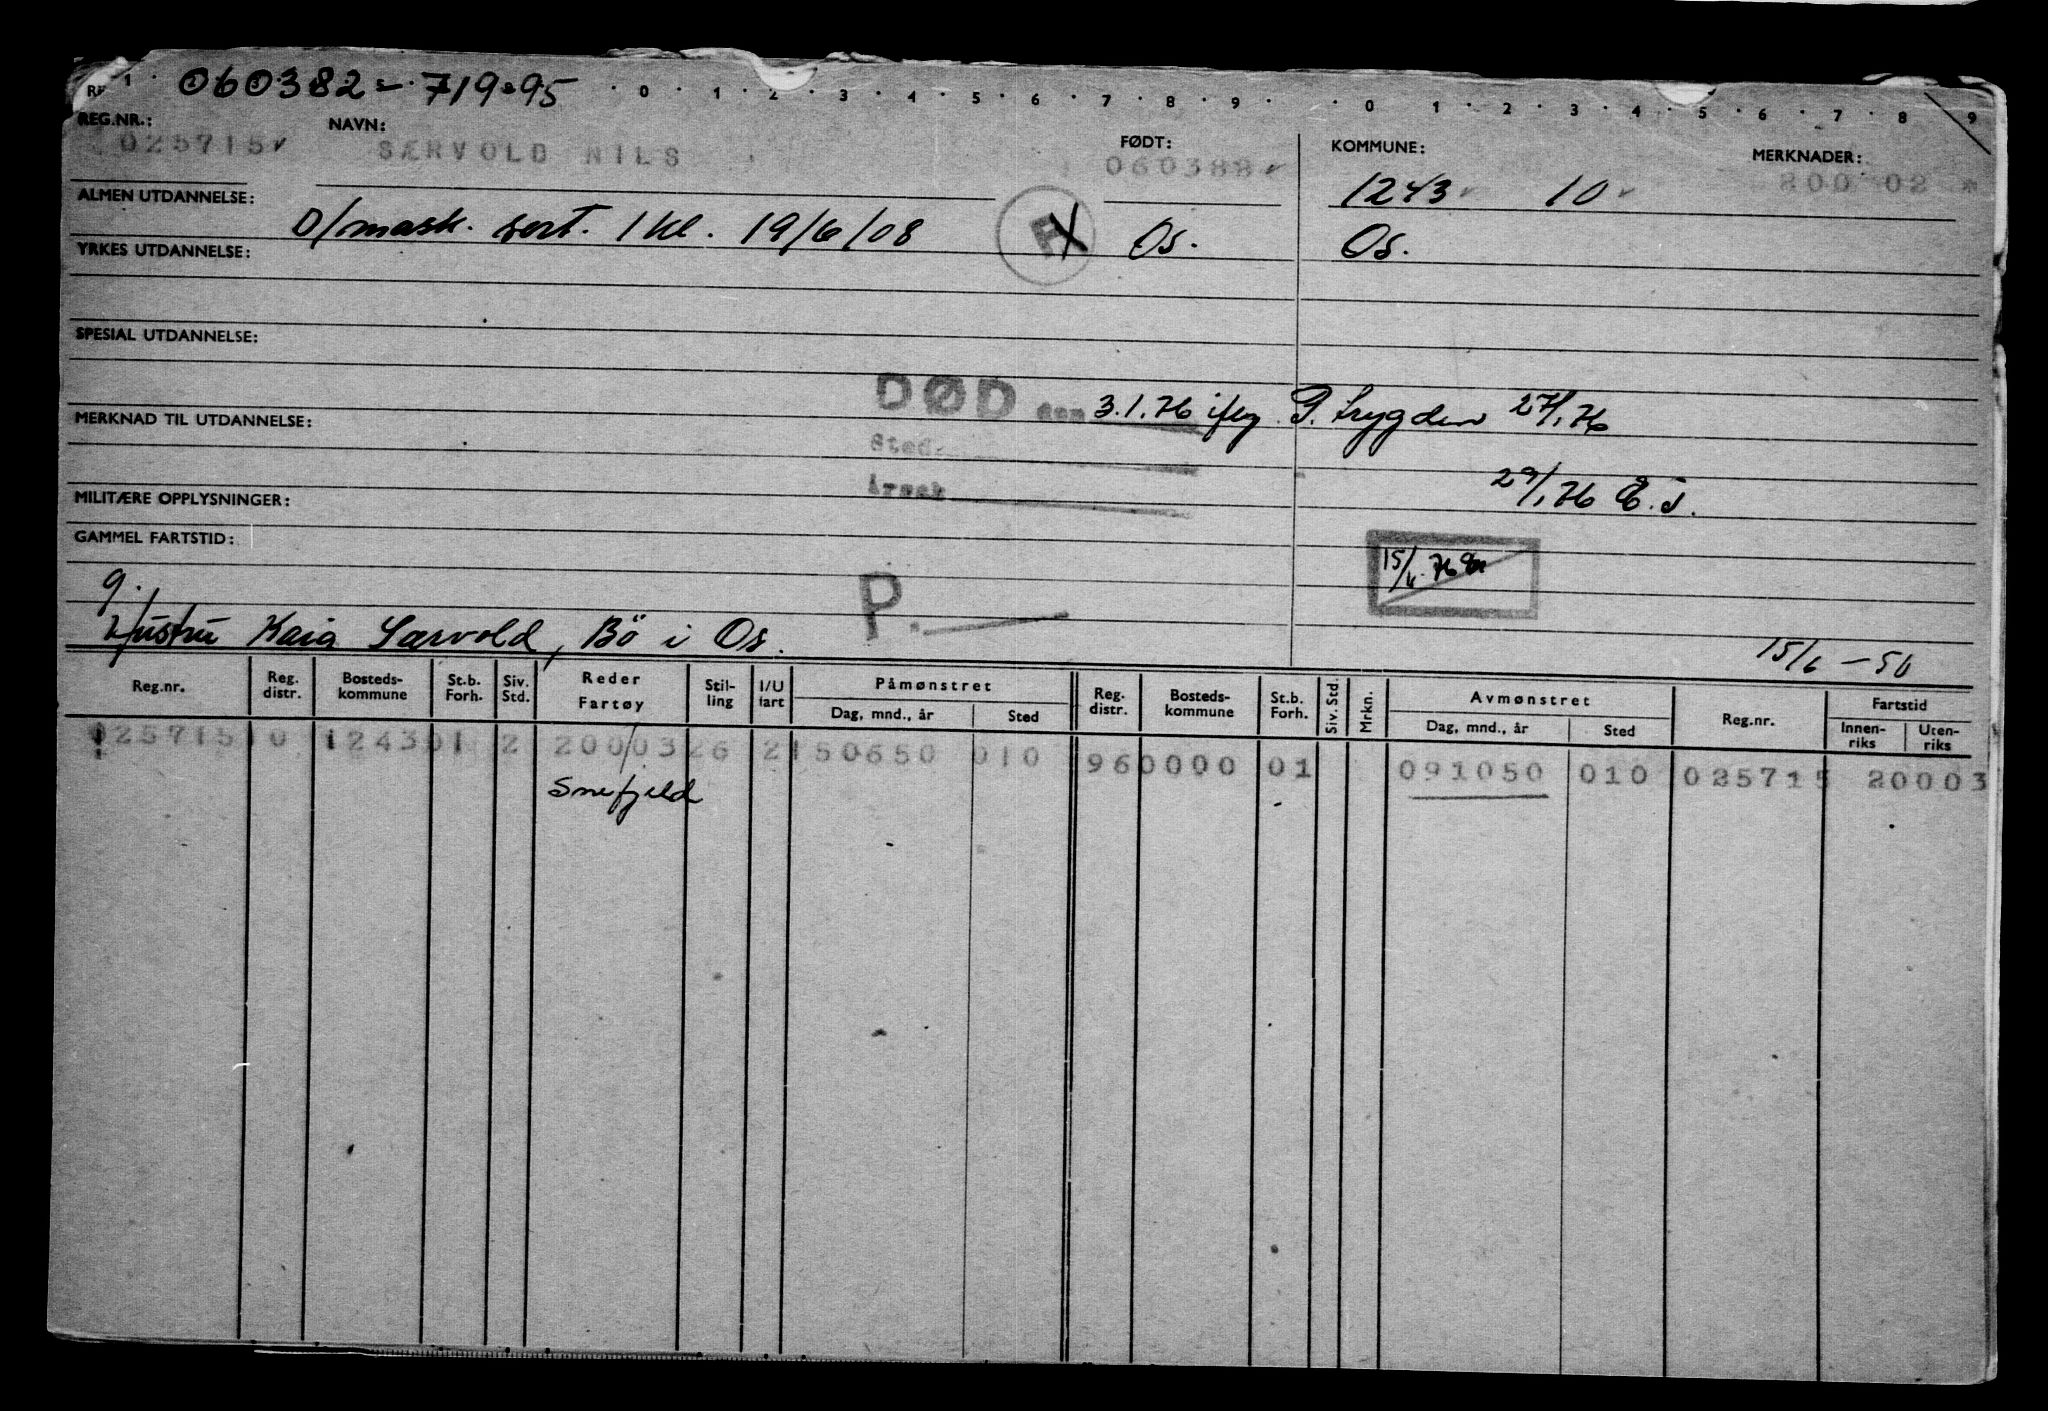 060382 - 719.95
1 . . 0 . 1 . 2 . 3 . 4 . 5 . 6 . 7 . 8 . 9 . . 0 . 1 . 2 . 3 . 4 . 5 . 6 . 7 . 8 . 9
REG.NR.: NAVN: FØDT: KOMMUNE: MERKNADER:
025715 SÆRVOLD NILS 060388 1243 10 800 02
ALMEN UTDANNELSE: D/mask. sert. 1 kl. 19/6/08 Os. Os.
YRKES UTDANNELSE:
SPESIAL UTDANNELSE:
DØD den 3.1.76 iflg P. trygden 27/1.76
MERKNAD TIL UTDANNELSE:
Sted.
29/1.76
Årsak
MILITÆRE OPPLYSNINGER:
GAMMEL FARTSTID:
15/6.76
g. P.
Hustru Kaia Særvold, Bö i Os. 15/6 - 50
Reg.nr. Reg. distr. Bosteds-kommune St.b. Forh. Siv. Std. Reder Fartøy Stil-ling I/U fart Påmønstret Dag, mnd., år Sted Reg. distr. Bosteds-kommune St.b. Forh. Siv. Std. Mrkn. Avmønstret Dag, mnd., år Sted Reg.nr. Fartstid Innen-riks Uten-riks
025715 10 1243 01 2 200/03 26 2 150650 010 96 0000 01 091050 010 025715 20003
Snefjeld